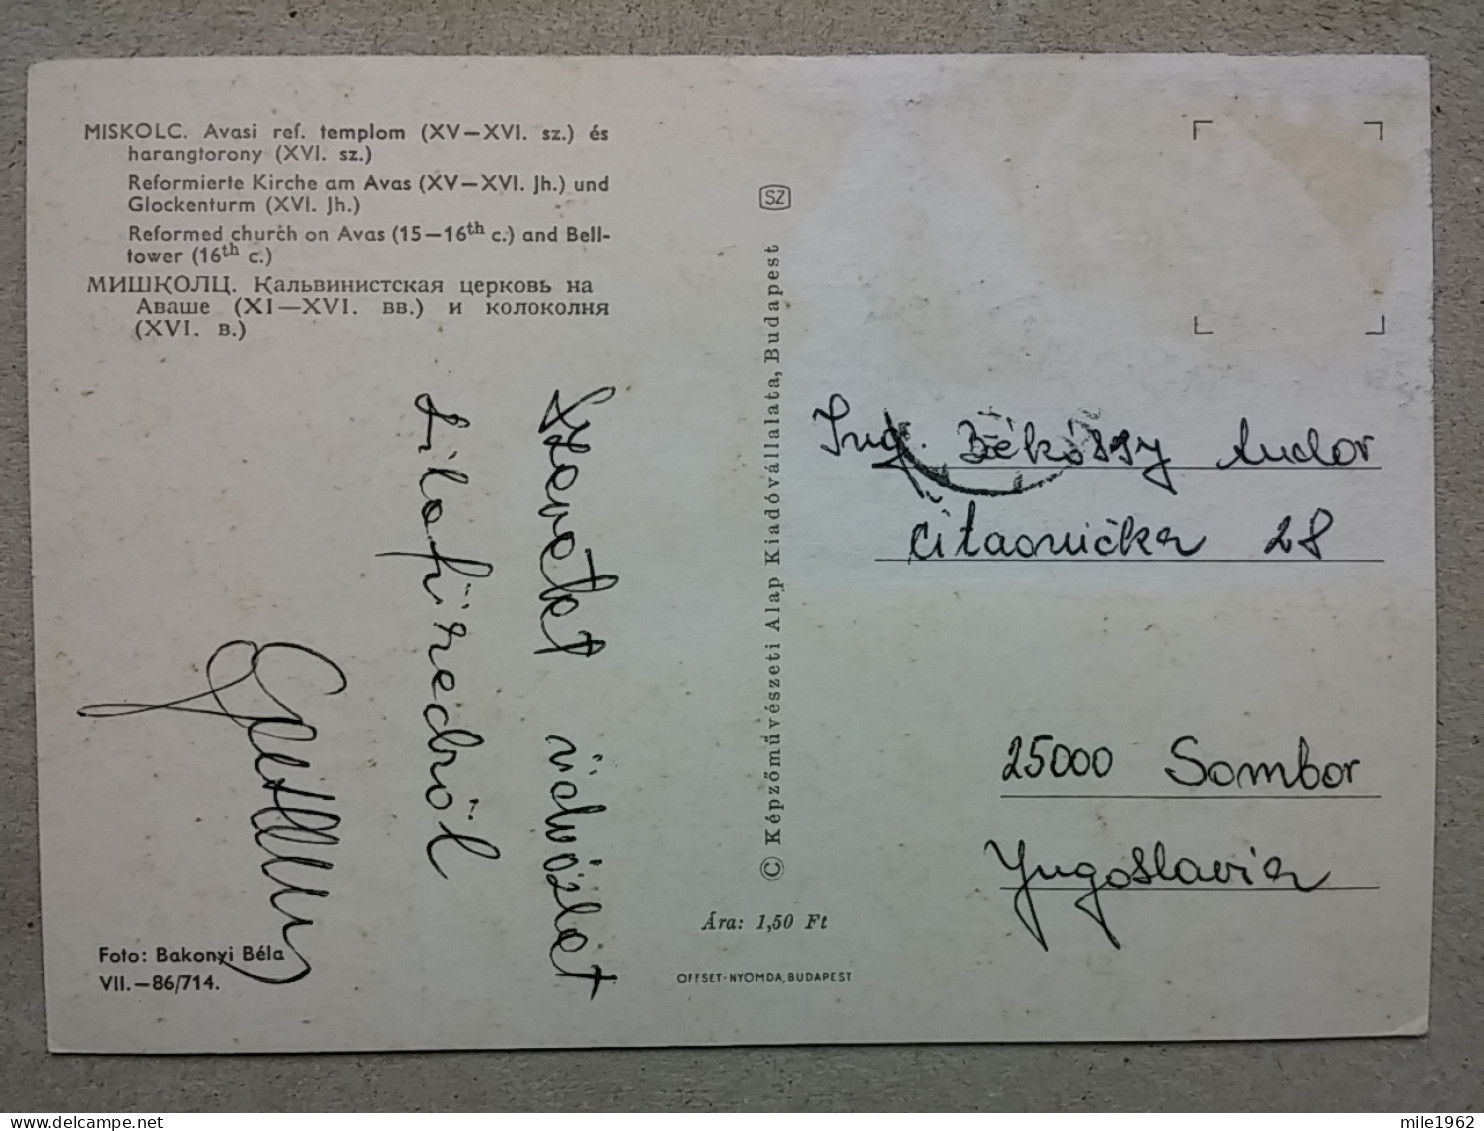 MISKOLC. Avasi ref. templom (XV—XVI. sz.) és
harangtorony (XVI. sz.)
Reformierte Kirche am Avas (XV—XVI. Jh.) und
Glockenturm (XVI. Jh.)
Reformed church on Avas (15—16th c.) and Bell-
tower (16th c.)
МИШКОЛЦ. Кальвинистская церковь на
Аваше (XI—XVI. вв.) и колоколня
(XVI. в.)
Szeretet üdvözlet
Lilafüredről
Foto: Bakonyi Béla
VII.—86/714.
SZ
© Képzőművészeti Alap Kiadóvállalata, Budapest
Ára: 1,50 Ft
OFFSET-NYOMDA, BUDAPEST
Ing. Békássy Andor
Čitaonička 28
25000 Sombor
Yugoslavia
mile1962